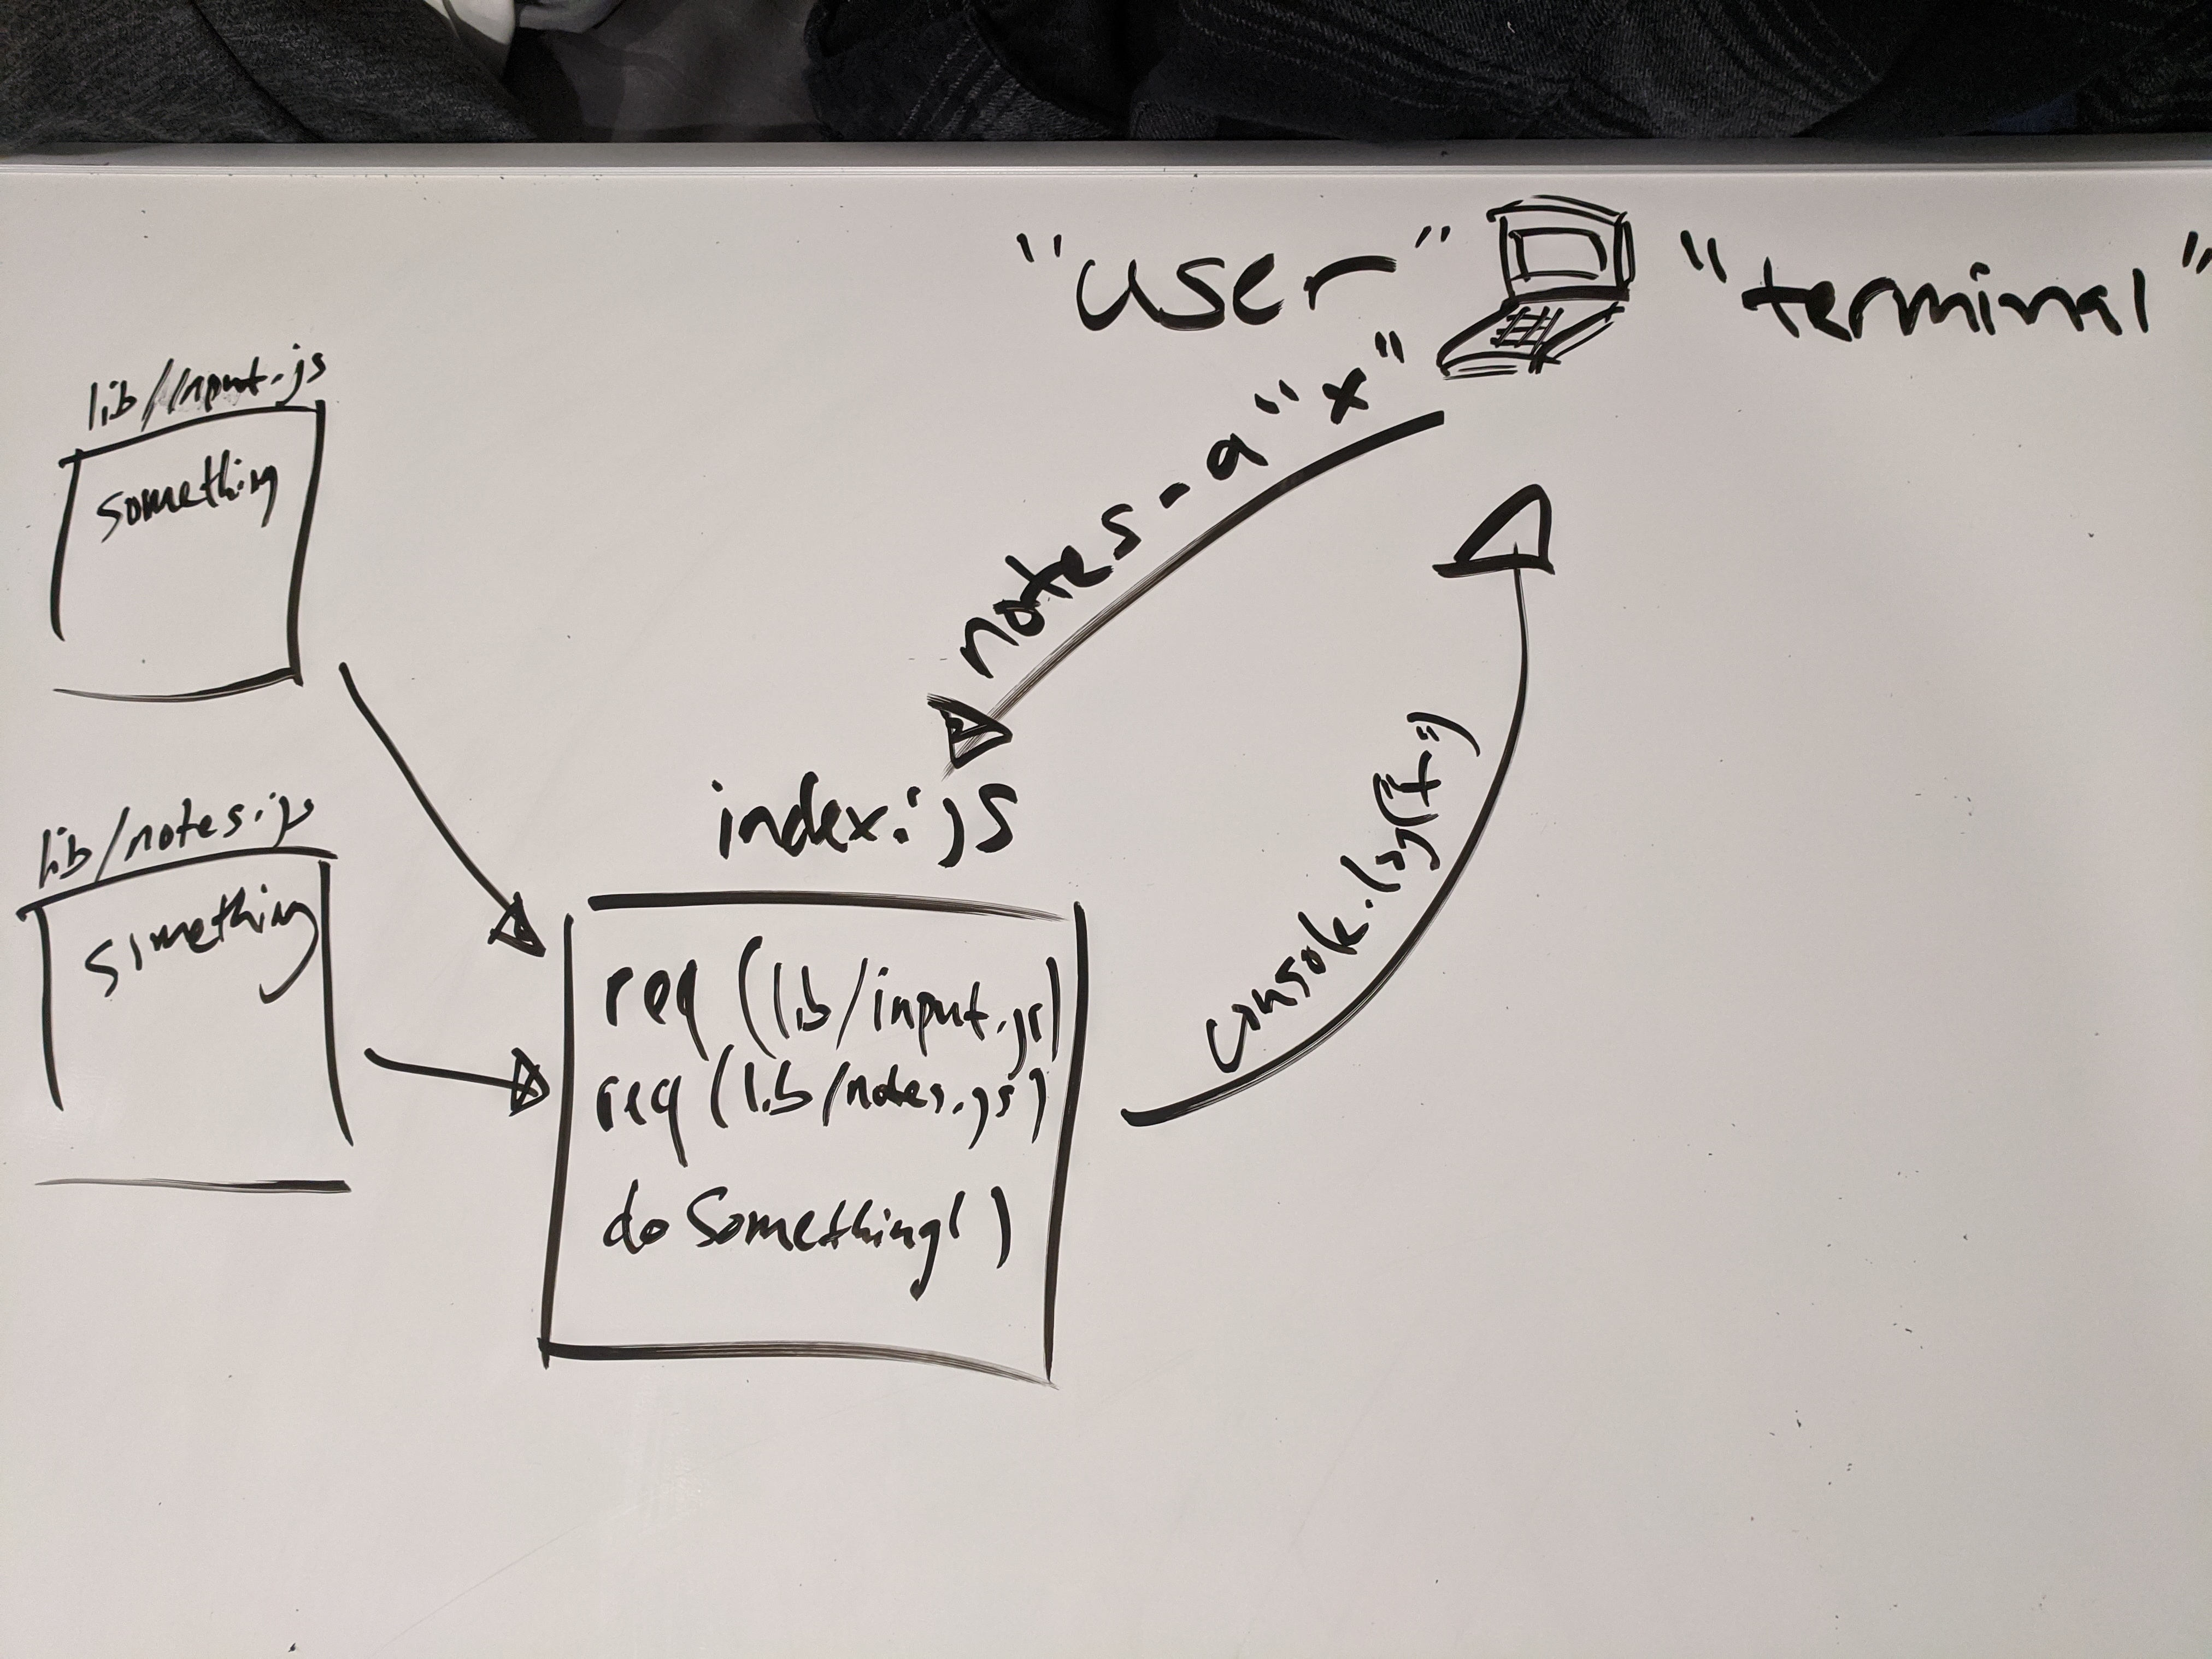 "user" "terminal"
notes -a "x"
lib/input.js
something
lib/notes.js
something
index.js
req (lib/input.js)
req (lib/notes.js)
do Something()
console.log("